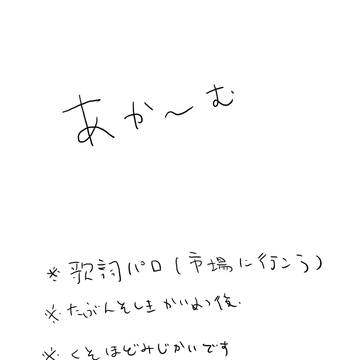 あか〜む
※歌詞パロ(市場に行こう)
※たぶんそしきかいめつ後.
※くそほどみじかいです